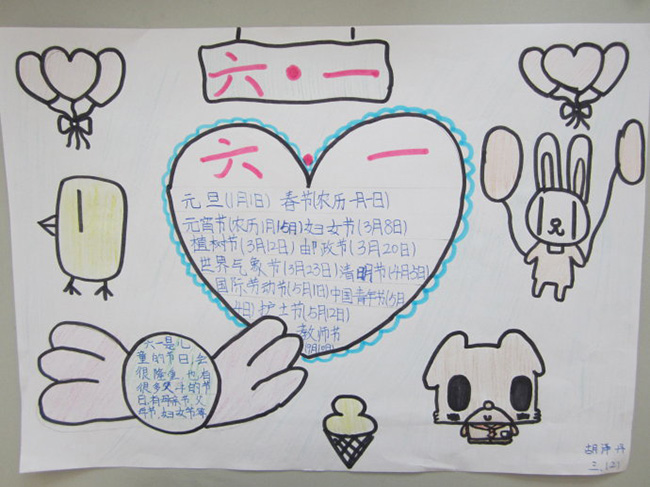 六·一
六·一
元旦(1月1日) 春节(农历一月一日)
元宵节(农历1月15日)妇女节(3月8日)
植树节(3月12日)邮政节(3月20日)
世界气象节(3月23日)清明节(4月5日)
国际劳动节(5月1日)中国青年节(5月
4日)护士节(5月12日)
教师节
六一是儿
童的节日,会
很隆重,也有
很多
的节
日,有母亲节,父
节,妇女节等
三.(2)